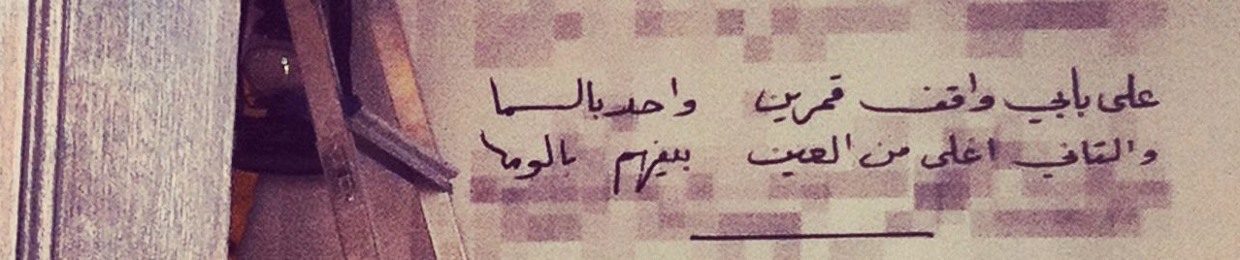 على بأبي واقف قمرين واحد بالسما
والتاني اغلى من العين بيفهم بالوما